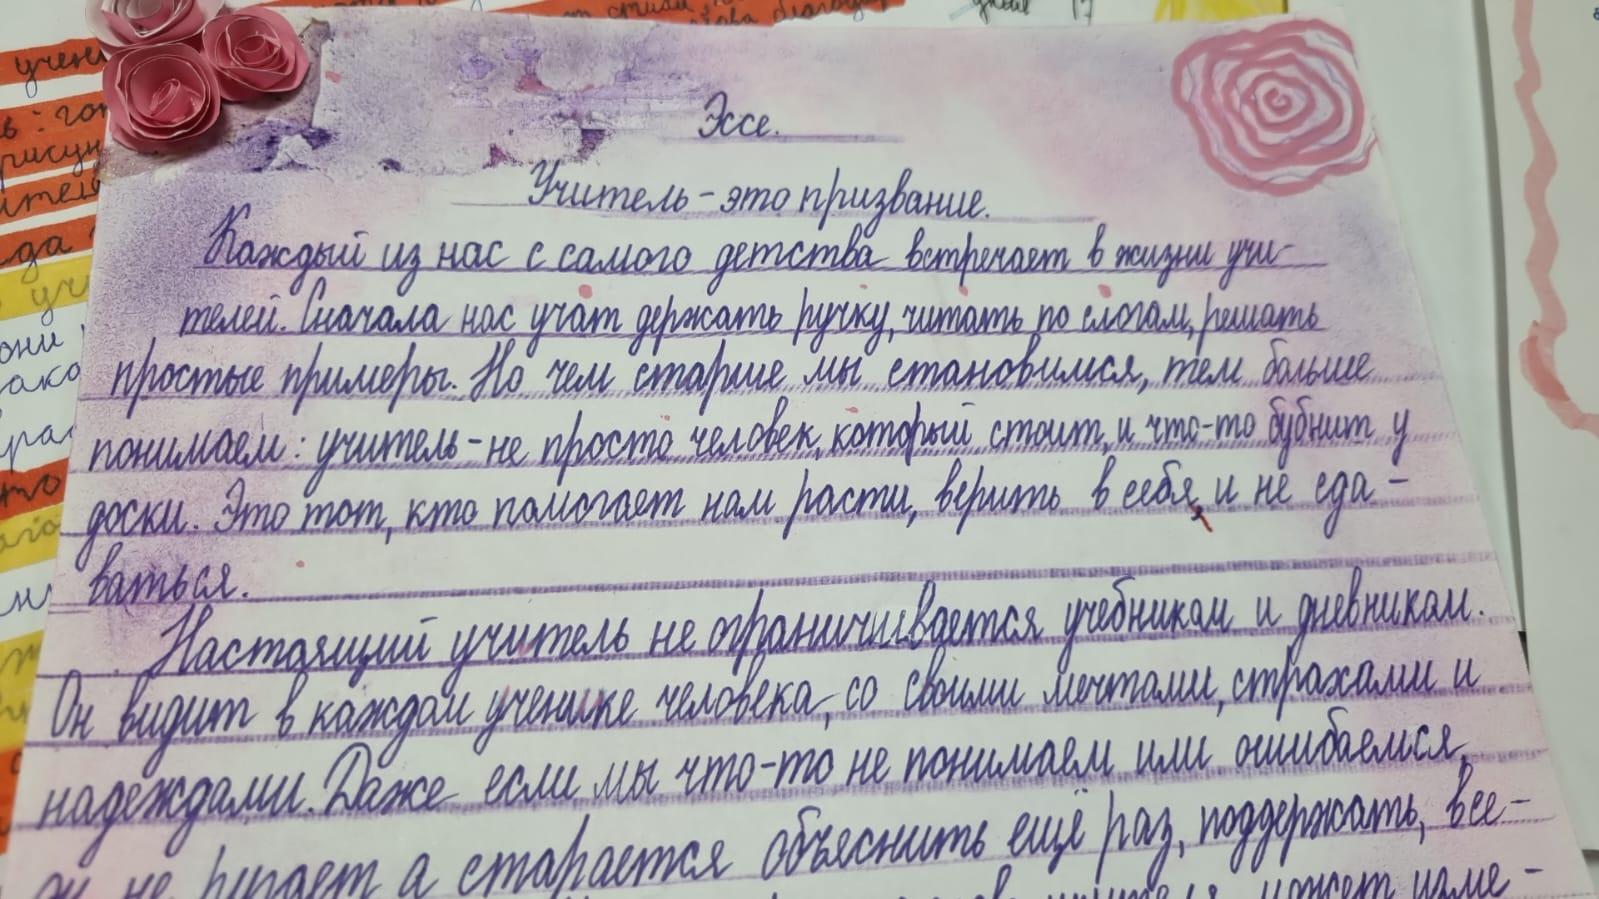 Эссе.
Учитель – это призвание.
Каждый из нас с самого детства встречает в жизни учи-
телей. Сначала нас учат держать ручку, читать по слогам, решать
простые примеры. Но чем старше мы становимся, тем больше
понимаем: учитель – не просто человек, который стоит, и что-то бубнит у
доски. Это тот, кто помогает нам расти, верить в себя, и не сда-
ваться.
Настоящий учитель не ограничивается учебником и дневником.
Он видит в каждом ученике человека, со своими мечтами, страхами и
надеждами. Даже если мы что-то не понимаем или ошибаемся,
он не ругает а старается объяснить ещё раз, поддержать, все-
учителя может изме-